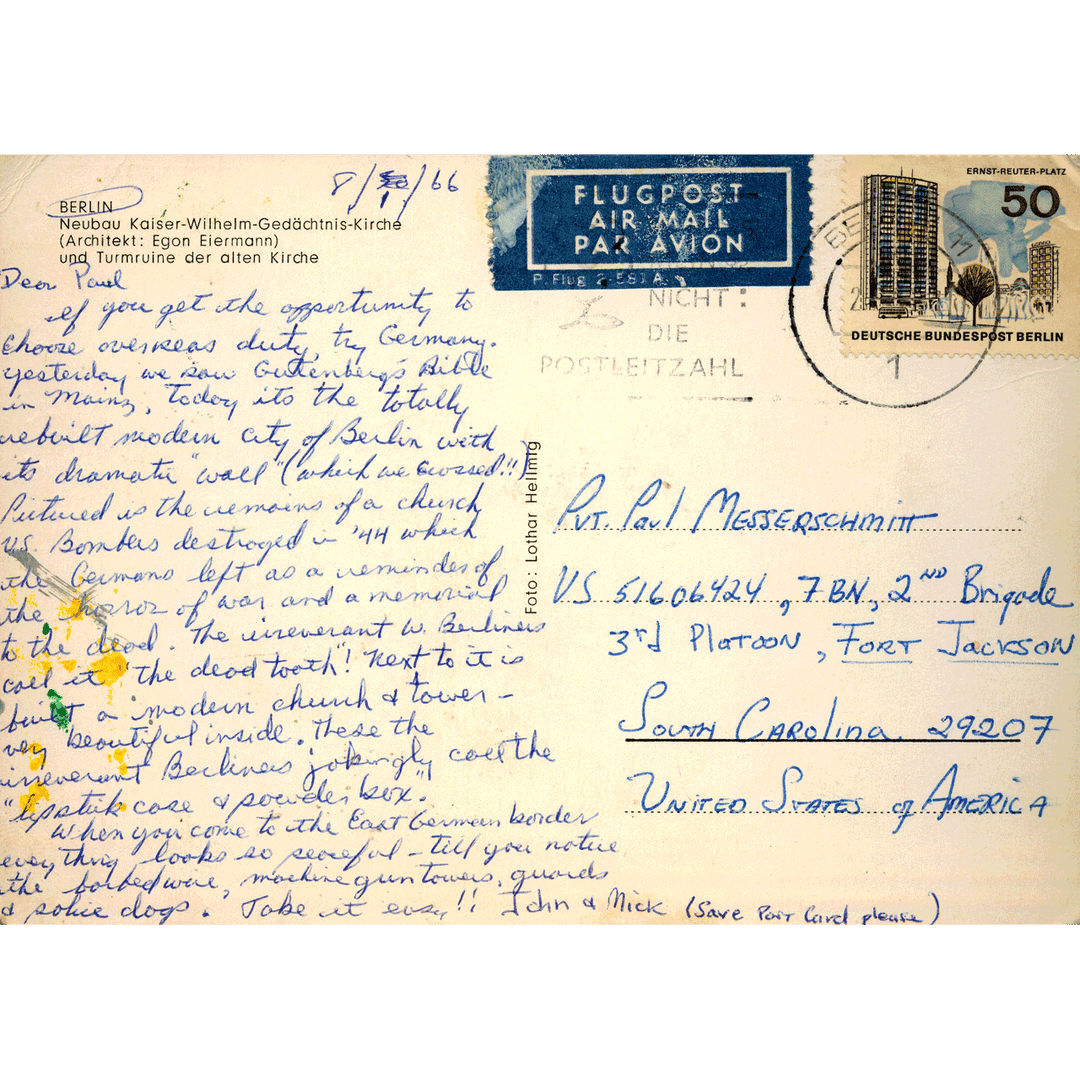 8/1/66
BERLIN
Neubau Kaiser-Wilhelm-Gedächtnis-Kirche
(Architekt: Egon Eiermann)
und Turmruine der alten Kirche
Dear Paul
If you get the opportunity to
choose overseas duty, try Germany.
Yesterday we saw Gutenberg's Bible
in Mainz, Today its the totally
rebuilt modern city of Berlin with
its dramatic "wall" (which we crossed!!)
Pictured is the remains of a church
U.S. Bombers destroyed in '44 which
the Germans left as a reminder of
the horror of war and a memorial
to the dead. The irreverant W. Berliners
call it "the dead tooth"! Next to it is
built a modern church & tower –
very beautiful inside. These the
irreverant Berliners jokingly call the
"lipstick case & powder box."
When you come to the East German border
everything looks so peaceful – till you notice
the barbed wire, machine gun towers, guards
& police dogs. Take it easy!! John & Mick (Save Post Card please)
FLUGPOST
AIR MAIL
PAR AVION
P. Flug 2 581 A.
NICHT:
DIE
POSTLEITZAHL
ERNST-REUTER-PLATZ
50
DEUTSCHE BUNDESPOST BERLIN
BE
11
1
Foto: Lothar Hellmig
Pvt. Paul MESSERSCHMITT
US 51606424, 7 BN, 2ND Brigade
3rd PLATOON, FORT JACKSON
SOUTH CAROLINA 29207
UNITED STATES of AMERICA